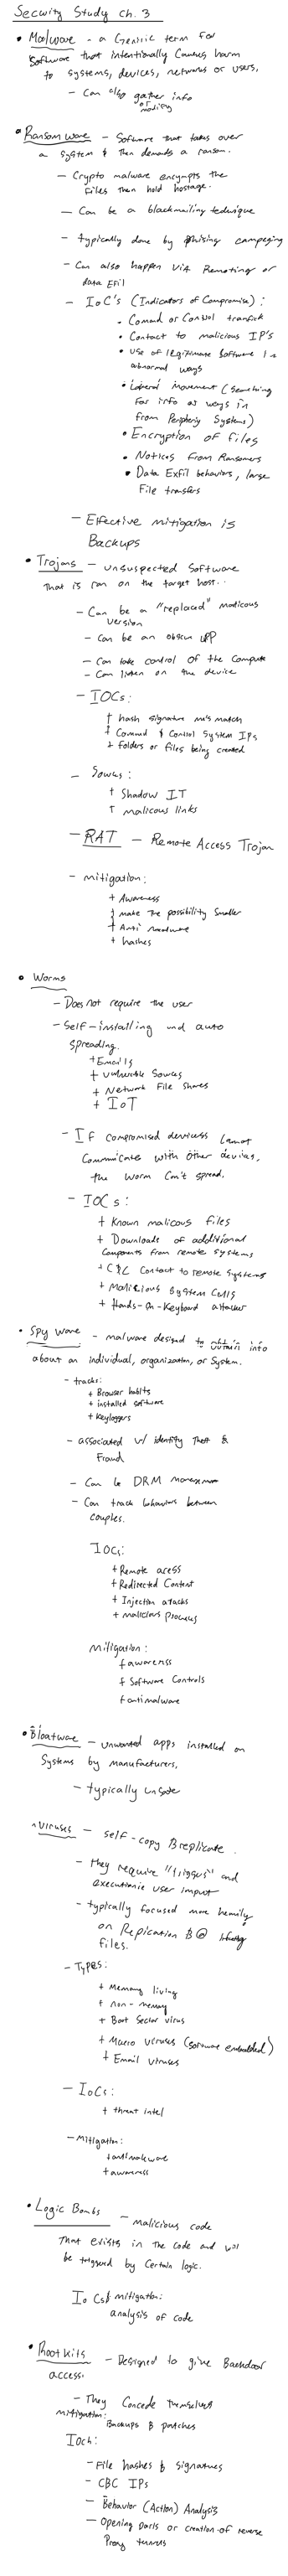 Security Study ch. 3
• Malware - a Generic term for
Software that intentionally Causes harm
to systems, devices, networks or users.
- Can also gather info
or modify
• Ransomware - Software that takes over
a system & then demands a ransom.
- Crypto malware encrypts the
Files then hold hostage.
- Can be a blackmailing technique
- typically done by phising campaging
- Can also happen via Remoting or
data Exfil
- IoC's (Indicators of Compromise):
• Comand or Control transfer
• Contact to malicious IP's
• Use of legitimate Software in
abnormal ways
• Lateral movement (Searching
for info as ways in
from Periphery Systems)
• Encryption of files
• Notices from Ransomers
• Data Exfil behaviors, large
File transfers
- Effective mitigation is
Backups
• Trojans - unsuspected Software
that is ran on the target host..
- Can be a "replaced" malicous
version
- Can be an obscure APP
- Can take control of the Computer
- Can listen on the device
- IOCs:
+ hash signature mismatch
+ Comand & Control System IPs
+ folders or files being created
- Sources:
+ Shadow IT
+ malicous links
- RAT - Remote Access Trojan
- mitigation:
+ Awareness
+ make the possibility Smaller
+ Anti malware
+ hashes
• Worms
- Does not require the user
- Self-installing and auto
spreading.
+ Emails
+ vulnerable Sources
+ Network File Shares
+ IoT
- If compromised devices Cannot
Communicate with other devices,
the worm Can't spread.
- IOCs:
+ Known malicous files
+ Downloads of additional
Components from remote systems
+ C&C Contact to remote Systems
+ Malicious System Calls
+ Hands-On-Keyboard attacker
• Spyware - malware designed to obtain info
about an individual, organization, or System.
- tracks:
+ Browser habits
+ installed software
+ Keyloggers
- associated w/ identity Theft &
Fraud
- Can be DRM
- Can track behaviors between
Couples.
IOCs:
+ Remote access
+ Redirected Content
+ Injection attacks
+ malicious processes
Mitigation:
+ awareness
+ Software Controls
+ antimalware
• Bloatware - unwanted apps installed on
Systems by manufacturers.
- typically unsafe
• Viruses - self-copy & replicate.
- they require "triggers" and
user input
- typically focused more heavily
on Replication &
files.
- Types:
+ Memory living
+ non-memory
+ Boot Sector virus
+ Macro viruses (software embedded)
+ Email viruses
- IoCs:
+ threat intel
- Mitigation:
+ antimalware
+ awareness
• Logic Bombs - malicious code
that exists in the code and will
be triggered by Certain logic.
IoCs & mitigation:
analysis of code
• Rootkits - Designed to give Backdoor
access.
- They Concede themselves
mitigation:
Backups & patches
IoCs:
- File hashes & signatures
- C&C IPs
- Behavior (Action) Analysis
- Opening Ports or creation of reverse
Proxy tunnels